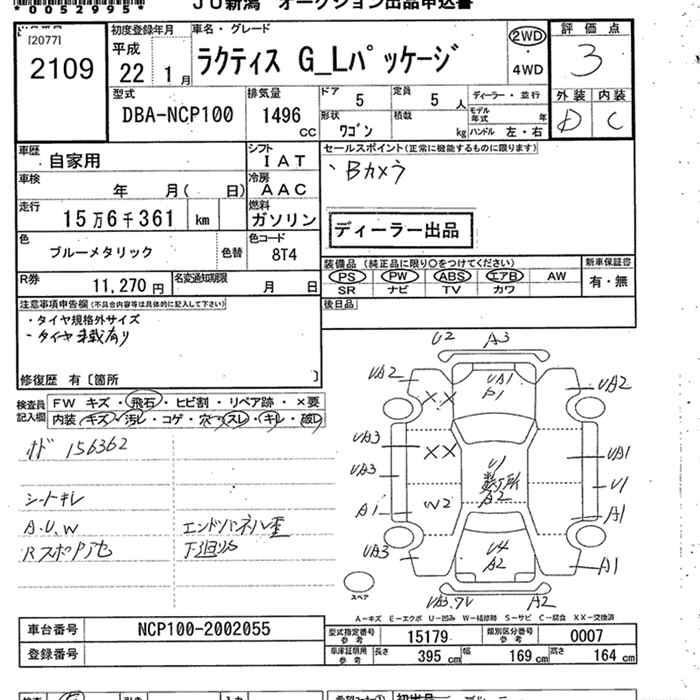 *0052995*
JU新潟 オークション出品申込書
[2077]
2109
初度登録年月
平成
22年 1月
車名・グレード
ラクティス G_Lパッケージ
2WD
4WD
評価点
3
型式
DBA-NCP100
排気量
1496
CC
ドア
5
定員
5人
形状
ワゴン
積載
kg
ディーラー・並行
モデル年式 年
ハンドル 左・右
外装 内装
D C
車歴
自家用
シフト
IAT
セールスポイント(正常に機能するものに限ります)
・Bカメラ
車検
年 月( 日)
冷房
AAC
走行
15万6千361 km
燃料
ガソリン
ディーラー出品
色
ブルーメタリック
色替
色コード
8T4
装備品 (純正品に限り○をつけてください)
PS PW ABS エアB AW
SR ナビ TV カワ
新車保証書
有・無
R券
11,270円
名変通知期限
月 日
後日品
注意事項申告欄(不具合内容等は具体的に記入して下さい)
・タイヤ規格外サイズ
修復歴 有〔箇所 〕
検査員記入欄
FW キズ・飛石・ヒビ割・リペア跡・×要
内装(キズ・汚レ・コゲ・穴・スレ・キレ・破レ)
オド 156362
シートキレ
A.U.W
エンドパネル歪
下廻サビ
U2 A3
UA1
P1
UA2 UA2
XX
XX
UA3
UA3
A1
W2
UA3
U1
数ヶ所
A2
UA1
U1
A1
A1
U4
A2
A2
スペア
A-キズ E-エクボ U-凹み W-補修跡 S-サビ C-腐食 XX-交換済
車台番号
NCP100-2002055
登録番号
型式指定番号参考
15179
類別区分番号参考
0007
車庫証明用参考
長さ 395cm
幅 169cm
高さ 164cm